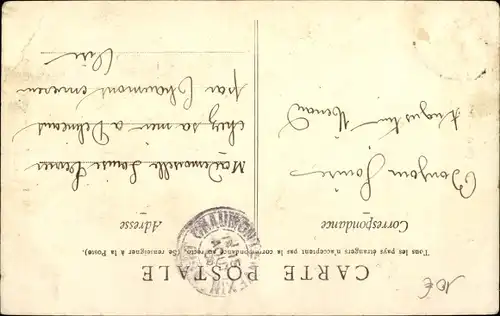 CARTE POSTALE
Tous les pays étrangers n'acceptent pas la correspondance au recto. (Se renseigner à la Poste).
Correspondance
Adresse
Bonjour Louise
Augustin
Mademoiselle Louise
chez sa mère a Delincourt
par Chaumont en vexin
Oise
CHAUMONT
VEXIN
10€